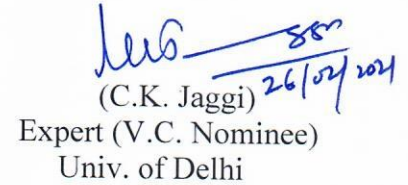 26/02/2021
(C.K. Jaggi)
Expert (V.C. Nominee)
Univ. of Delhi